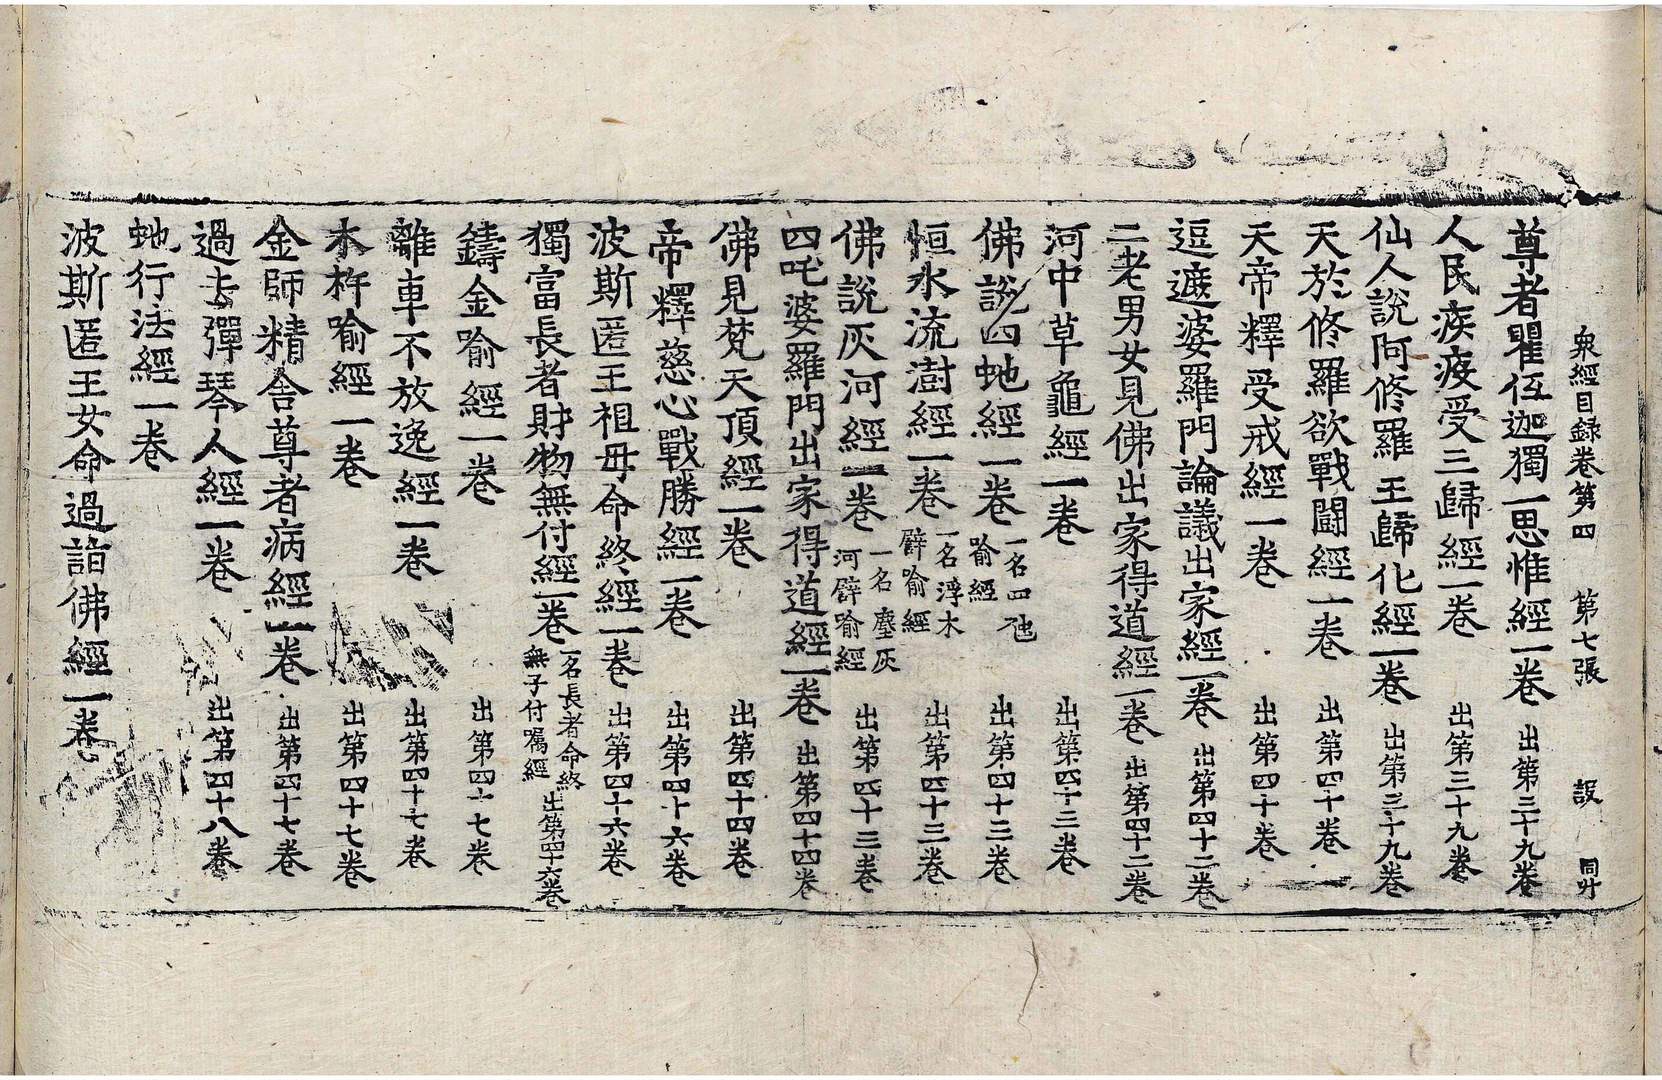 衆經目録卷第四 第七張 設 同
尊者瞿伍迦獨一思惟經一卷 出第三十九卷
人民疾疫受三歸經一卷 出第三十九卷
仙人說阿修羅王歸化經一卷 出第三十九卷
天於修羅欲戰鬪經一卷 出第四十卷
天帝釋受戒經一卷 出第四十卷
逗遮婆羅門論議出家經一卷 出第四十二卷
二老男女見佛出家得道經一卷 出第四十二卷
河中草龜經一卷 出第四十三卷
佛說四虵經一卷 一名四虵喻經 出第四十三卷
恒水流澍經一卷 一名浮木譬喻經 出第四十三卷
佛說灰河經一卷 一名塵灰河譬喻經 出第四十三卷
四吒婆羅門出家得道經一卷 出第四十四卷
佛見梵天頂經一卷 出第四十四卷
帝釋慈心戰勝經一卷 出第四十六卷
波斯匿王祖母命終經一卷 出第四十六卷
獨富長者財物無付經一卷 一名長者命終無子付囑經 出第四十六卷
鑄金喻經一卷 出第四十七卷
離車不放逸經一卷 出第四十七卷
木杵喻經一卷 出第四十七卷
金師精舍尊者病經一卷 出第四十七卷
過去彈琴人經一卷 出第四十八卷
虵行法經一卷
波斯匿王女命過詣佛經一卷